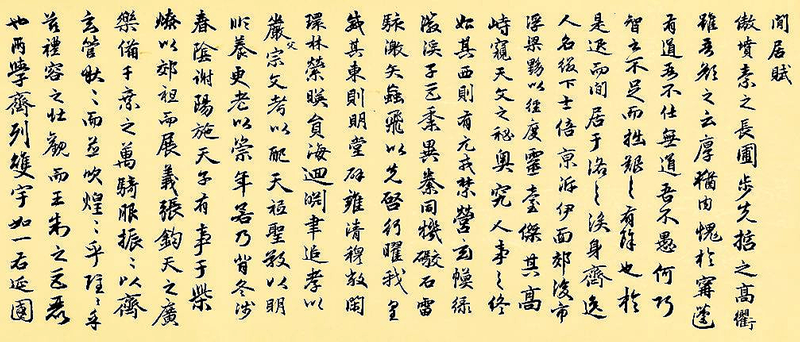 閒居賦
傲墳素之長圃步先哲之高衢
雖吾顏之云厚猶内愧於甯蘧
有道吾不仕無道吾不愚何巧
智之不足而拙艱之有餘也於
是退而閒居于洛之涘身齊逸
人名綴下士倍京泝伊面郊後市
浮梁黝以徑度靈臺傑其高
峙窺天文之秘奧究人事之終
始其西則有元戎禁營玄幙綠
徽溪子巨黍異絭同機礮石雷
駭激矢蝱飛以先啓行曜我皇
威其東則明堂辟雍清穆敞閑
環林縈暎圓海迴淵聿追孝以
嚴父宗文考以配天祗聖敬以明
順養更老以崇年若乃背冬涉
春陰謝陽施天子有事于柴
燎以郊祖而展義張鈞天之廣
樂備千乘之萬騎服振〻以齊
玄管啾〻而並吹煌〻乎隱〻乎
茲禮容之壯觀而王制之巨麗
也兩學齊列雙宇如一右延國